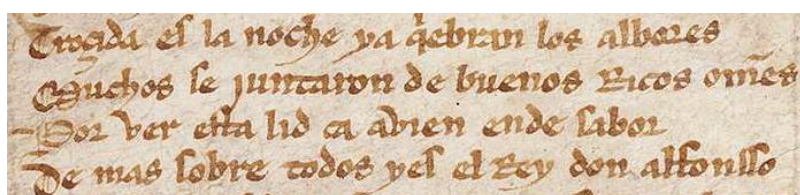 Troçida es la noche ya q̃ebran los albores
Muchos se juntaron de buenos Ricos om̃es
Por ver esta lid ca abien ende sabor
De mas sobre todos yes el Rey don alfonsso